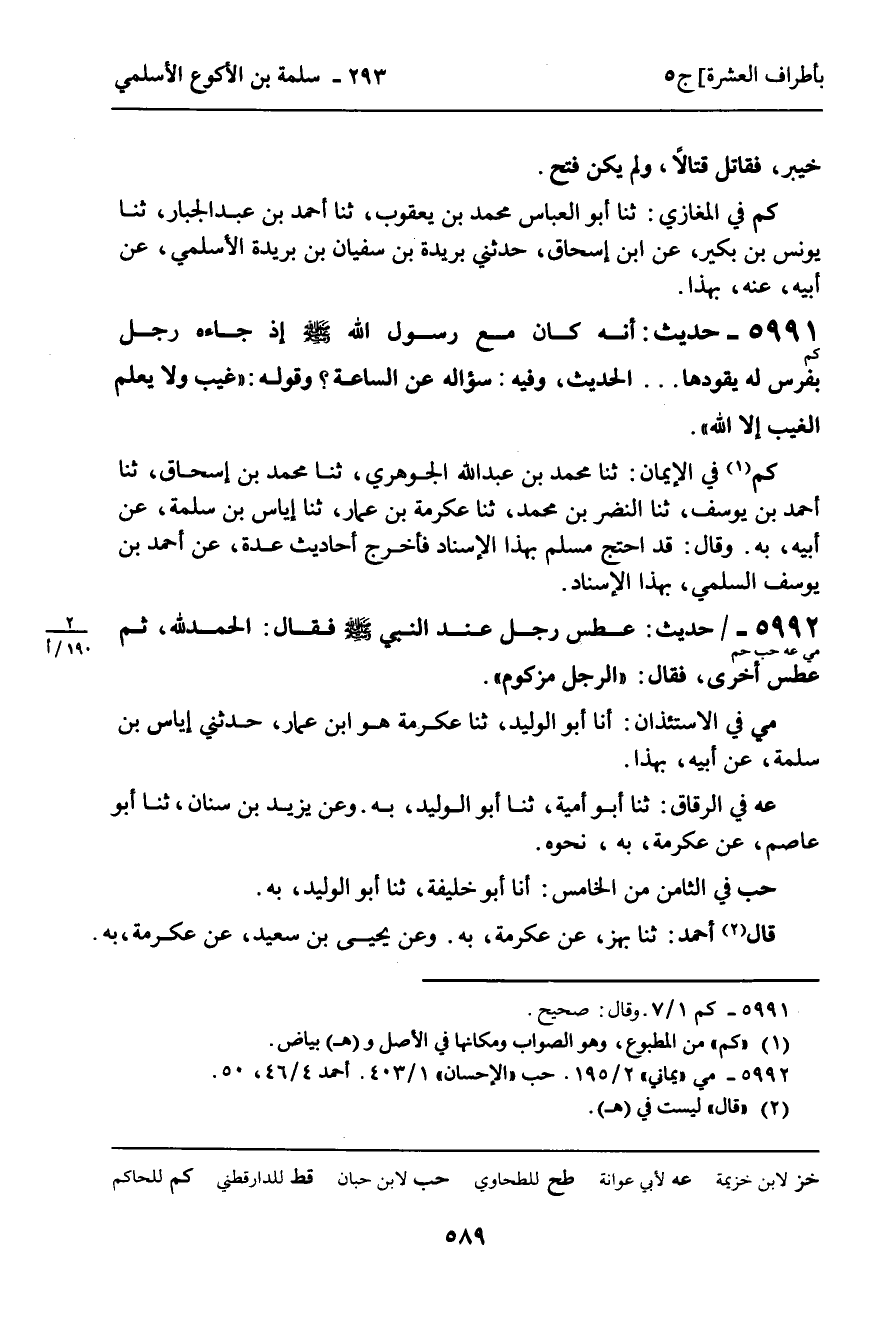 بأطراف العشرة] ج٥ ٢٩٣ ـ سلمة بن الأكوع الأسلمي
خيبر، فقاتل قتالاً، ولم يكن فتح.
كم في المغازي: ثنا أبو العباس محمد بن يعقوب، ثنا أحمد بن عبدالجبار، ثنا
يونس بن بكير، عن ابن إسحاق، حدثني بريدة بن سفيان بن بريدة الأسلمي، عن
أبيه، عنه، بهذا.
٥٩٩١ ـ حديث: أنه كان مع رسول الله ﷺ إذ جاءه رجل
كم
بفرس له يقودها... الحديث، وفيه: سؤاله عن الساعة؟ وقوله: «غيب ولا يعلم
الغيب إلا الله».
كم(١) في الإيمان: ثنا محمد بن عبدالله الجوهري، ثنا محمد بن إسحاق، ثنا
أحمد بن يوسف، ثنا النضر بن محمد، ثنا عكرمة بن عمار، ثنا إياس بن سلمة، عن
أبيه، به. وقال: قد احتج مسلم بهذا الإسناد فأخرج أحاديث عدة، عن أحمد بن
يوسف السلمي، بهذا الإسناد.
٥٩٩٢ ـ / حديث: عطس رجل عند النبي ﷺ فقال: الحمدلله، ثم
٢
١٩٠/أ
مي عه حب حم
عطس أخرى، فقال: «الرجل مزكوم».
مي في الاستئذان: أنا أبو الوليد، ثنا عكرمة هو ابن عمار، حدثني إياس بن
سلمة، عن أبيه، بهذا.
عه في الرقاق: ثنا أبو أمية، ثنا أبو الوليد، به. وعن يزيد بن سنان، ثنا أبو
عاصم، عن عكرمة، به، نحوه.
حب في الثامن من الخامس: أنا أبو خليفة، ثنا أبو الوليد، به.
قال(٢) أحمد: ثنا بهز، عن عكرمة، به. وعن يحيى بن سعيد، عن عكرمة، به.
٥٩٩١ ـ كم ٧/١. وقال: صحيح.
(١) «كم» من المطبوع، وهو الصواب ومكانها في الأصل و (هـ) بياض.
٥٩٩٢ ـ مي «يماني» ١٩٥/٢. حب «الإحسان» ٤٠٣/١. أحمد ٤٦/٤، ٥٠.
(٢) «قال» ليست في (هـ).
خز لابن خزيمة عه لأبي عوانة طح للطحاوي حب لابن حبان قط للدارقطني كم للحاكم
٥٨٩